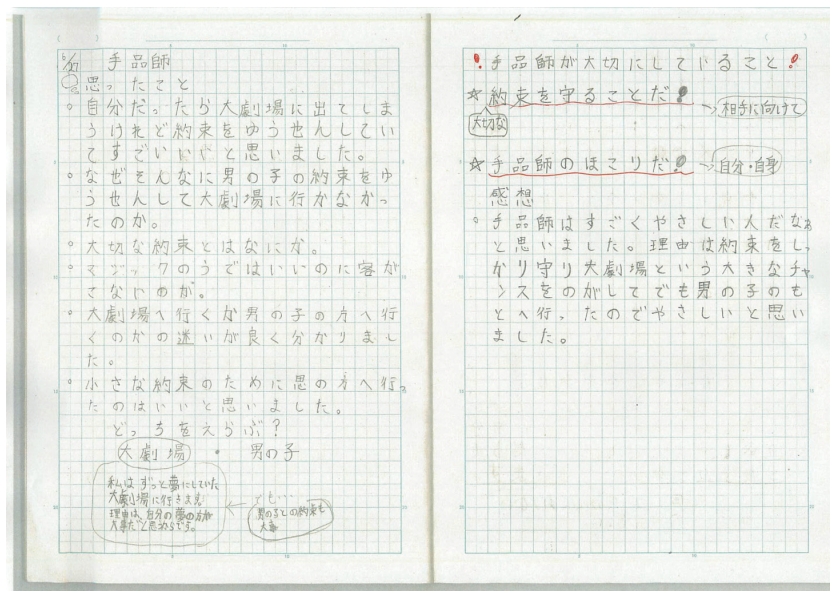 5/27 手品師
思ったこと
。自分だったら大劇場に出てしま
うけれど約束をゆう せんしてい
てすごいいいと思いました。
。なぜそんなに男の子の約束をゆ
う せんして大劇場に行かなかっ
たのか。
。大切な約束とはなにか。
。マジックのうではいいのに客が
こないのが。
。大劇場へ行くか男の子の方へ行
くのかの迷いが良く分かりまし
た。
。小さな約束のために思の方へ行っ
たのはいいと思いました。
どっちをえらぶ?
大劇場 ・ 男の子
私はずっと夢にしていた
大劇場に行きます!
理由は、自分の夢の方が
大事だと思うからです。
でも…
男の子との約束も
大事
!手品師が大切にしていること!
☆約束を守ることだ!
→相手に向けて
大切な
☆手品師のほこりだ!→自分・自身
感想
。手品師はすごくやさしい人だなぁ
と思いました。理由は約束をしっ
かり守り大劇場という大きなチャ
ンスをのがしてでも男の子のも
とへ行ったのでやさしいと思い
ました。